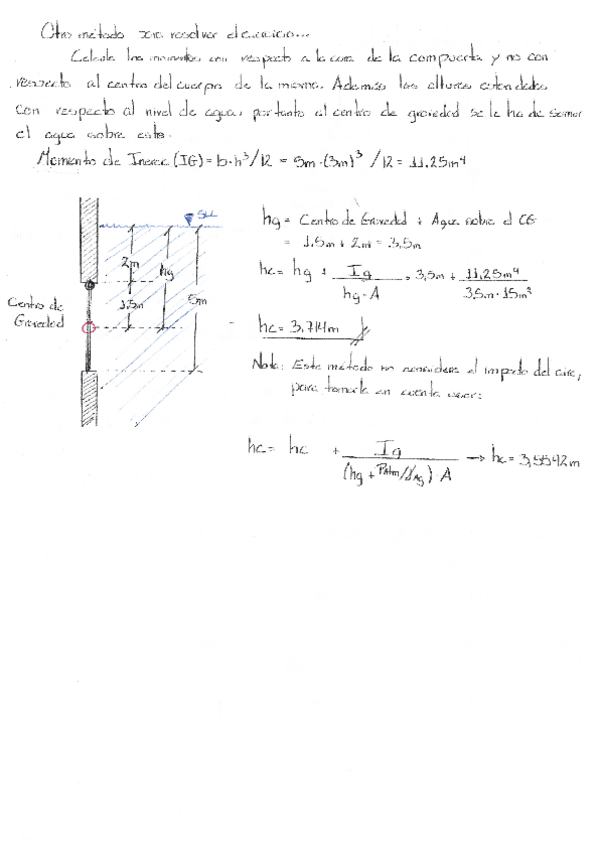 Otro método para resolver el ejercicio...
Calcula los momentos con respecto a la cara de la compuerta y no con
respecto al centro del cuerpo de la misma. Además las alturas
con respecto al nivel de agua, por tanto al centro de gravedad se le ha de sumar
el agua sobre este.
Momento de Inercia (IG) = b·h³/12 = 5m·(3m)³/12 = 11,25m⁴
hg = Centro de Gravedad + Agua sobre el CG
= 1.5m + 2m = 3,5m
hc = hg + Ig / hg·A = 3,5m + 11,25m⁴ / 3.5m·15m²
hc = 3,714m
Nota: Este método no considera el impacto del aire,
para tomarla en cuenta usar:
hc = hc + Ig / (hg + Patm/γAg)·A → hc = 3,5542m
2m
hg
1.5m
5m
Centro de
Gravedad